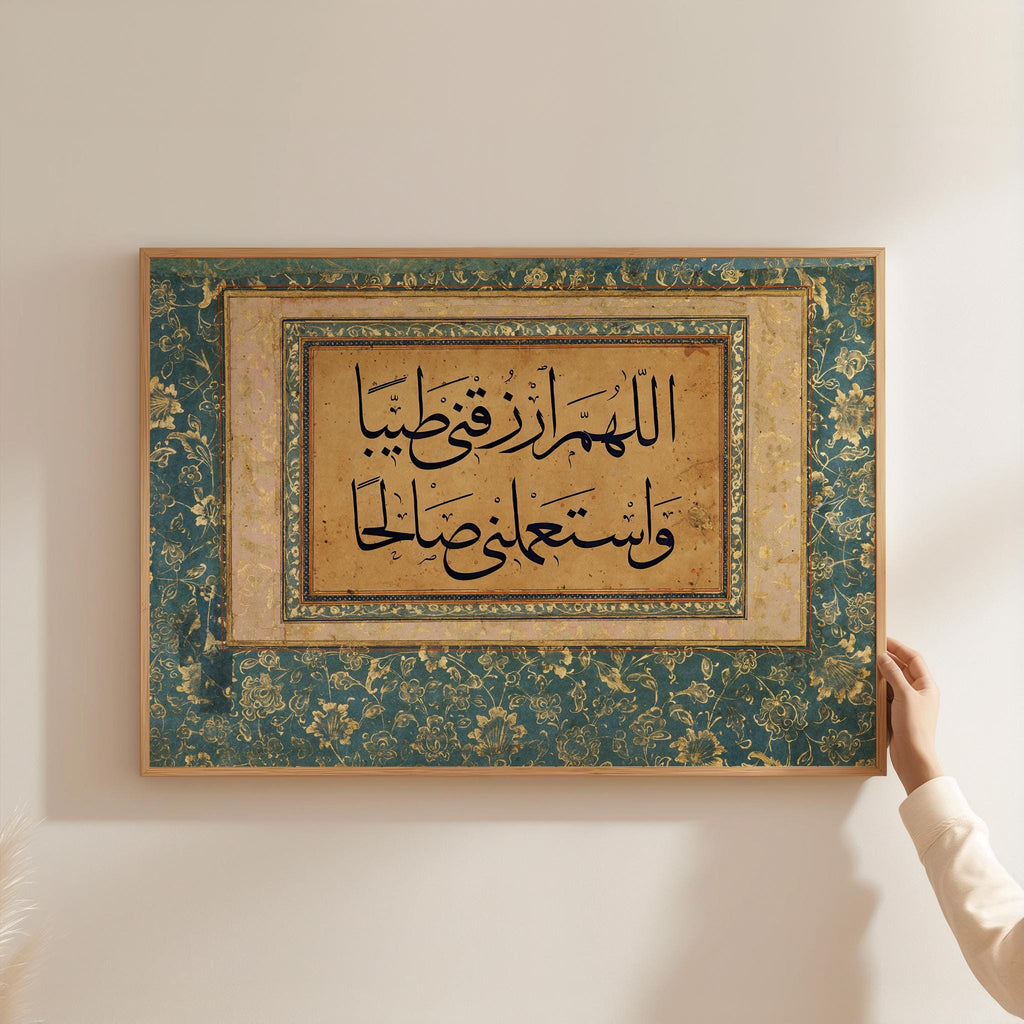 اللّٰهمَّ ارْزُقْنِي طَيِّبًا
وَاسْتَعْمِلْنِي صَالِحًا